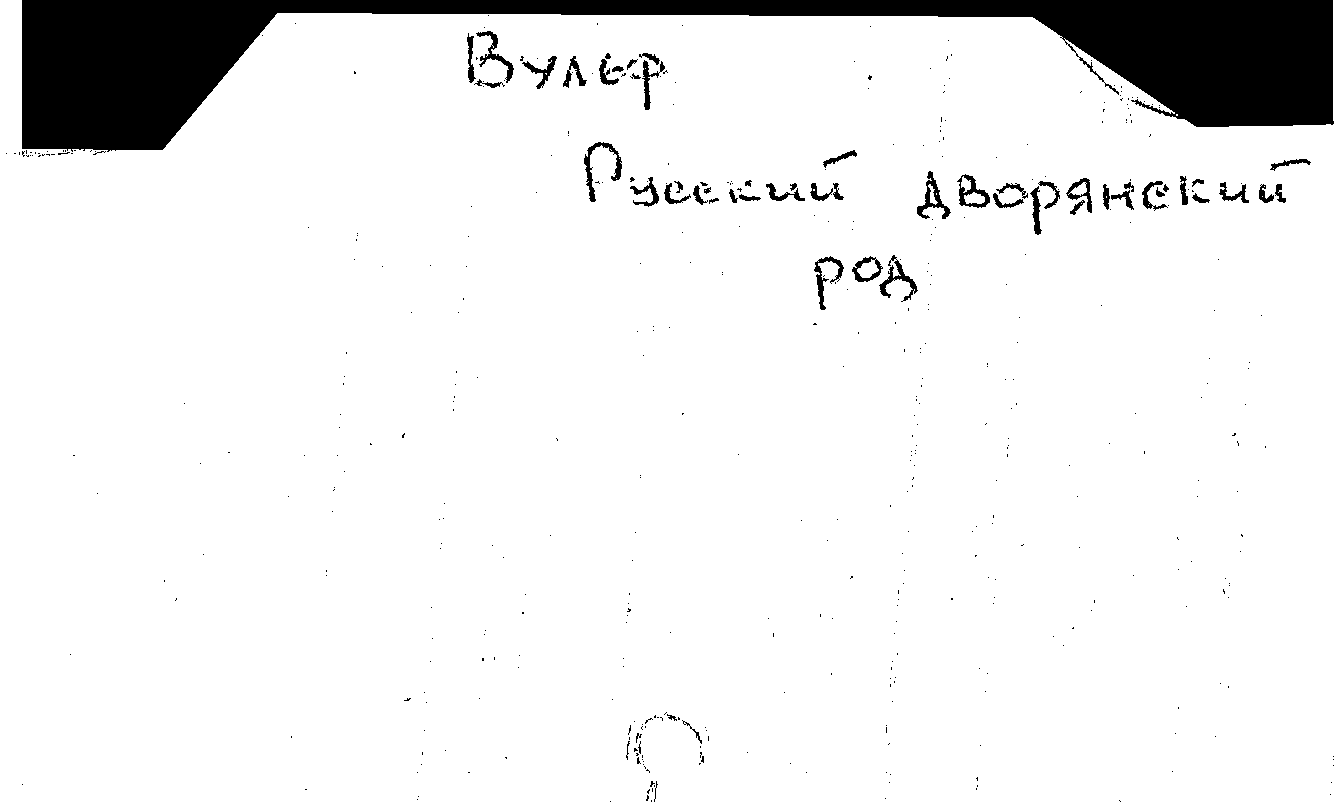 Вульф
Русский дворянский
род